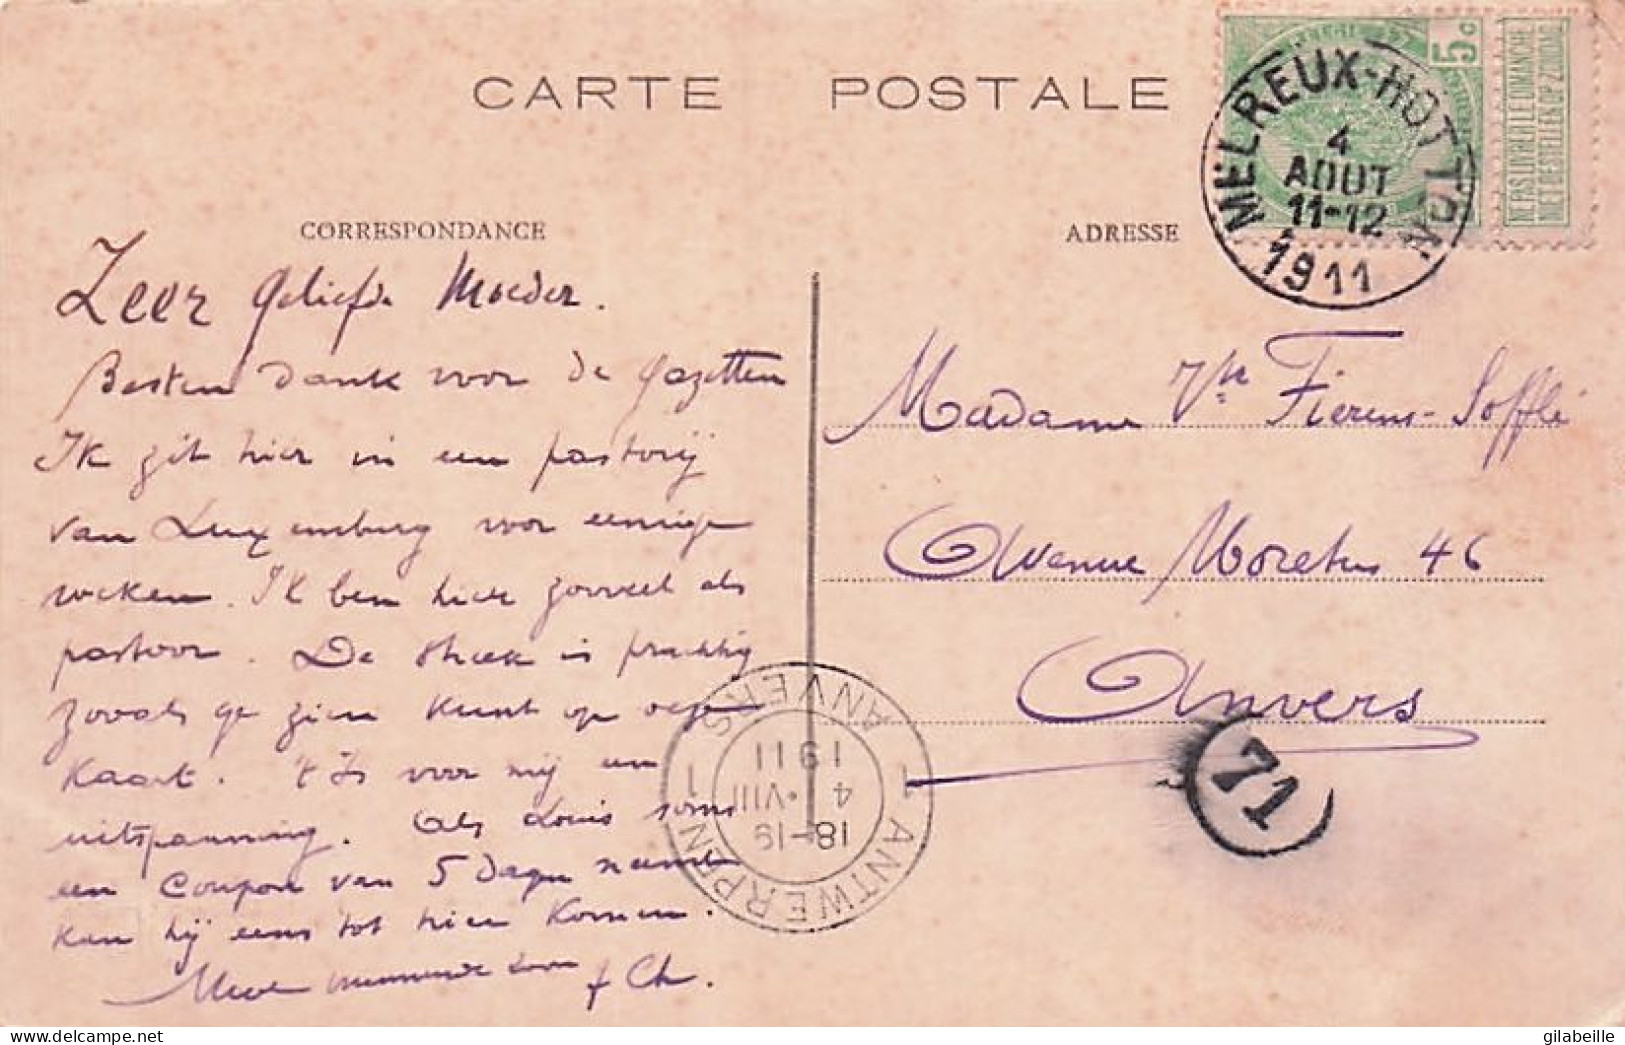 CARTE POSTALE
CORRESPONDANCE
ADRESSE
5c
NE PAS LIVRER LE DIMANCHE
NIET BESTELLEN OP ZONDAG
MELREUX-HOTTON
4
AOUT
11-12
1911
Zeer geliefde Moeder.
Besten dank voor de gazetten
Ik zit hier in een pastorij
van Luxemburg voor eenige
weken. Ik ben hier zooveel als
pastoor. De streek is prachtig
zooals ge zien kunt op
kaart. 't Is voor mij een
uitspanning. Als Louis soms
een Coupon van 5 dagen neemt
kan hij eens tot hier komen.
Uwe zoon f Ch.
Madame Vn Fierens-Sofflé
Avenue Moretus 46
Anvers
1 ANTWERPEN 1
ANVERS
18-19
4 ·VIII
1911
71
gilabeille